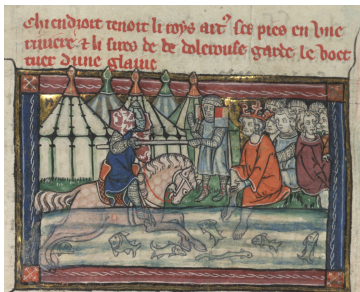 Chi endroit tenoit li roys artꝰ ses pies en vne
riuiere ⁊ li sires de de dolerouse garde le voet
tuer dune glaiue